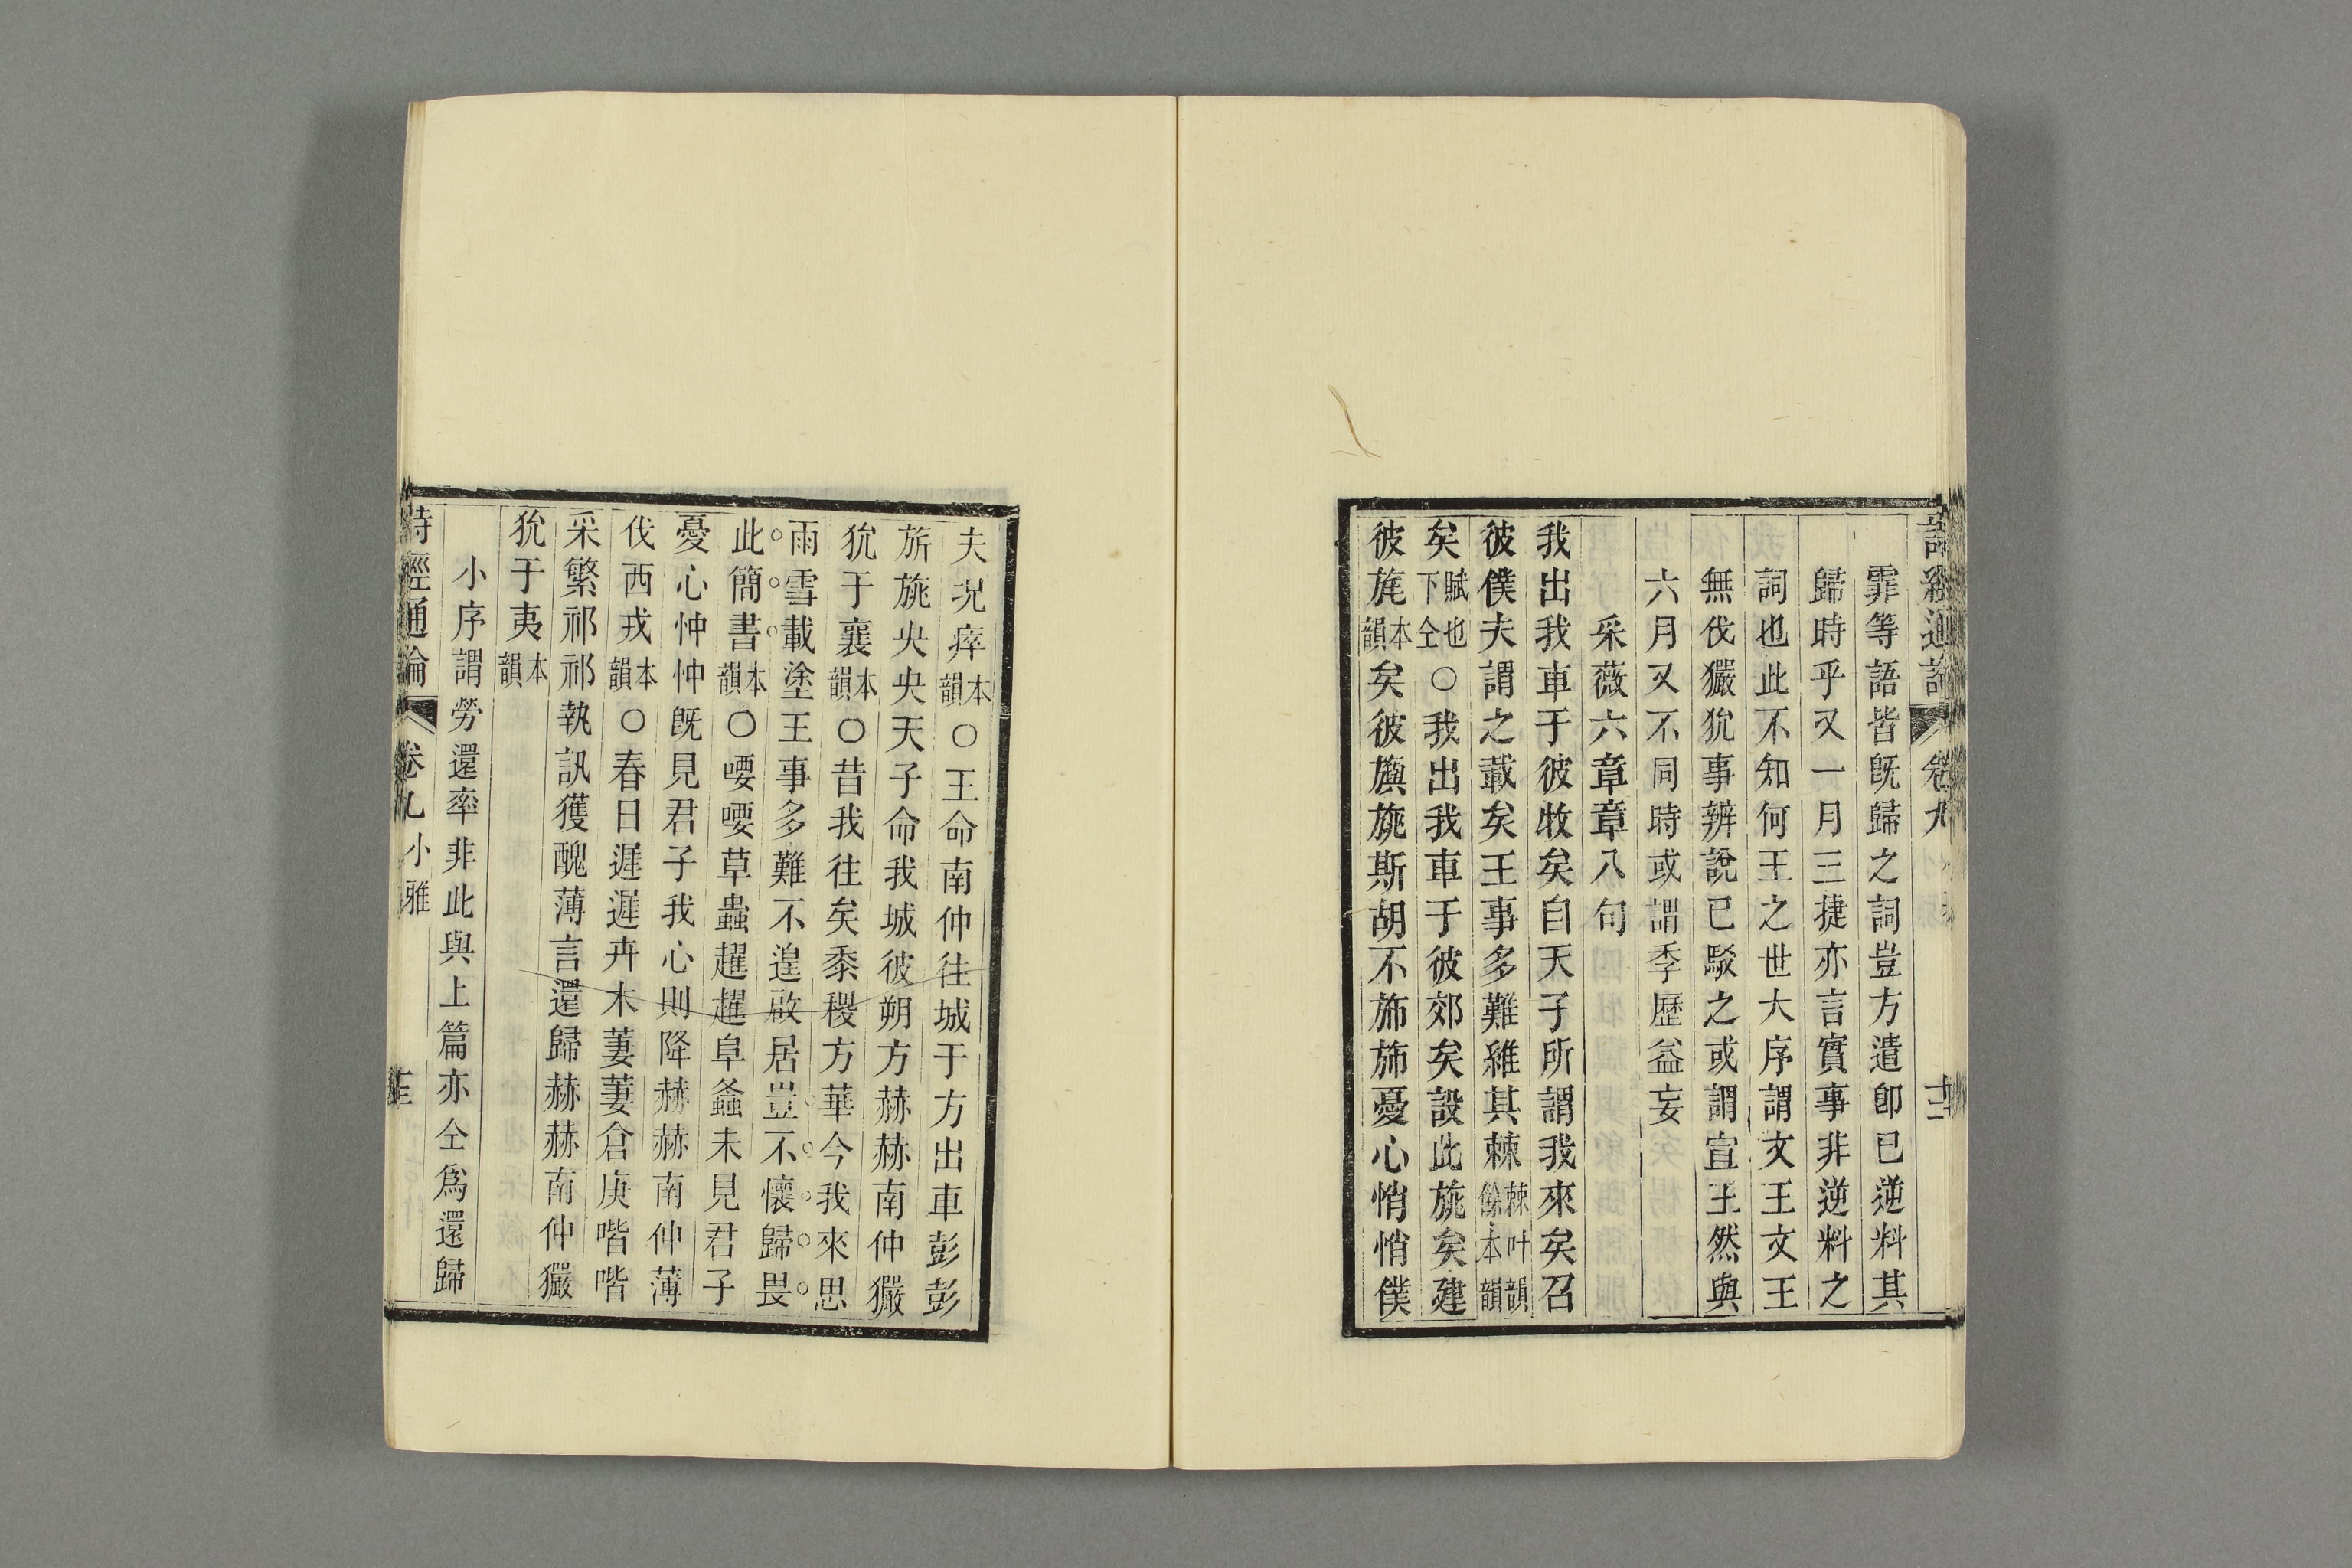 詩經通論 卷九 十二
霏等語皆旣歸之詞豈方遣卽已逆料其
歸時乎又一月三捷亦言實事非逆料之
詞也此不知何王之世大序謂文王文王
無伐玁狁事辨說已駁之或謂宣王然與
六月又不同時或謂季歷益妄
采薇六章章八句
我出我車于彼牧矣自天子所謂我來矣召
彼僕夫謂之載矣王事多難維其棘棘叶韻餘本韻
矣賦也下仝○我出我車于彼郊矣設此旐矣建
彼旄本韻矣彼旟旐斯胡不旆旆憂心悄悄僕
夫況瘁本韻○王命南仲往城于方出車彭彭
旂旐央央天子命我城彼朔方赫赫南仲玁
狁于襄本韻○昔我往矣黍稷方華今我來思
雨雪載塗王事多難不遑啟居豈不懷歸畏
此簡書本韻○喓喓草蟲趯趯阜螽未見君子
憂心忡忡旣見君子我心則降赫赫南仲薄
伐西戎本韻○春日遲遲卉木萋萋倉庚喈喈
采繁祁祁執訊獲醜薄言還歸赫赫南仲玁
狁于夷本韻
小序謂勞還率非此與上篇亦仝爲還歸
詩經通論 卷九 小雅 十三